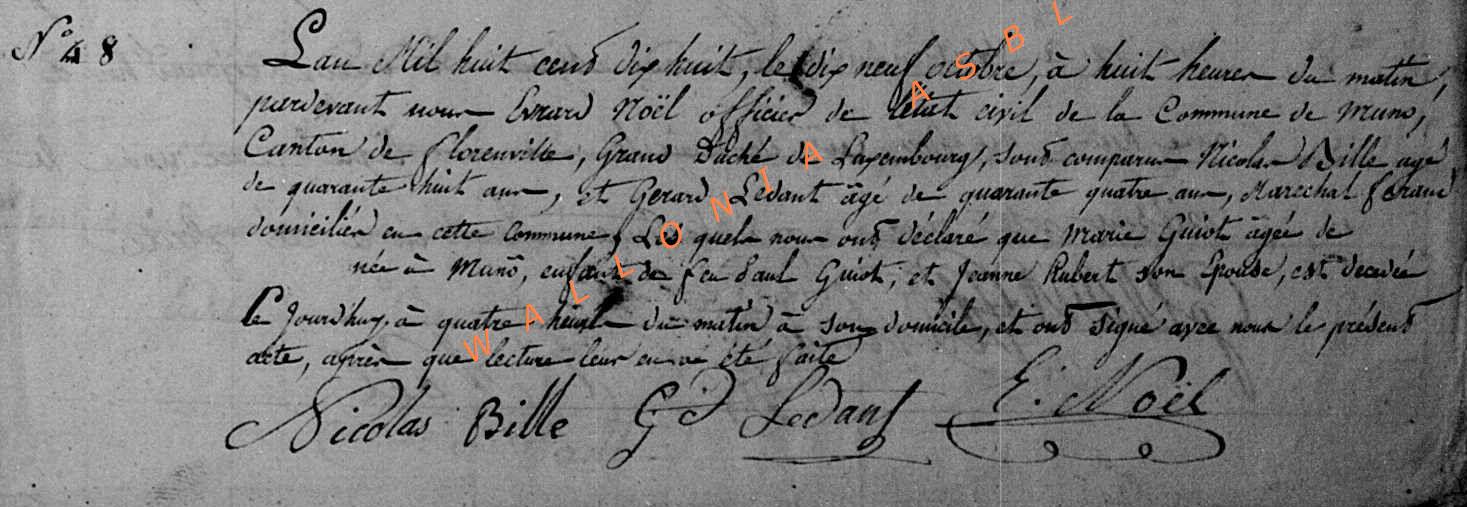 N° 48
L'an Mil huit cent dix huit, le dix neuf octobre, à huit heures du matin,
pardevant nous Evrard Noël officier de l'état civil de la Commune de Muno,
Canton de florenville, Grand Duché de Luxembourg, sont comparus Nicolas Bille agé
de quarante huit ans, et Gerard Ledant âgé de quarante quatre ans, Marechal ferant
domiciliés en cette Commune, Les quels nous ont déclaré que Marie Guiot âgée de
née à Muno, enfant de feu Paul Guiot, et Jeanne Rubert son Epouse, est decedée
Ce Jourd'huy, à quatre heures du matin à son domicile, et ont signé avec nous le présent
acte, après que lecture leur en a été faite
Nicolas Bille Gd Ledant E. Noël
WALLONIA ASBL